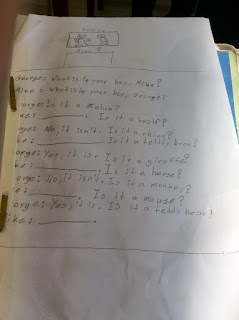 George: What is in your box, Mike?
Mike: What is in your box, George?
orge: Is it a zebra?
ke: ________. Is it a wolf?
rge: No, it isn't. Is it a rhino?
ke: ________ Is it a teddy bear?
orge: Yes, it is. Is it a giraffe?
ke: ________. Is it a horse?
orge: No, it isn't. Is it a monkey?
e: ________. Is it a mouse?
orge: Yes, it is. Is it a teddy bear?
ike: ________.